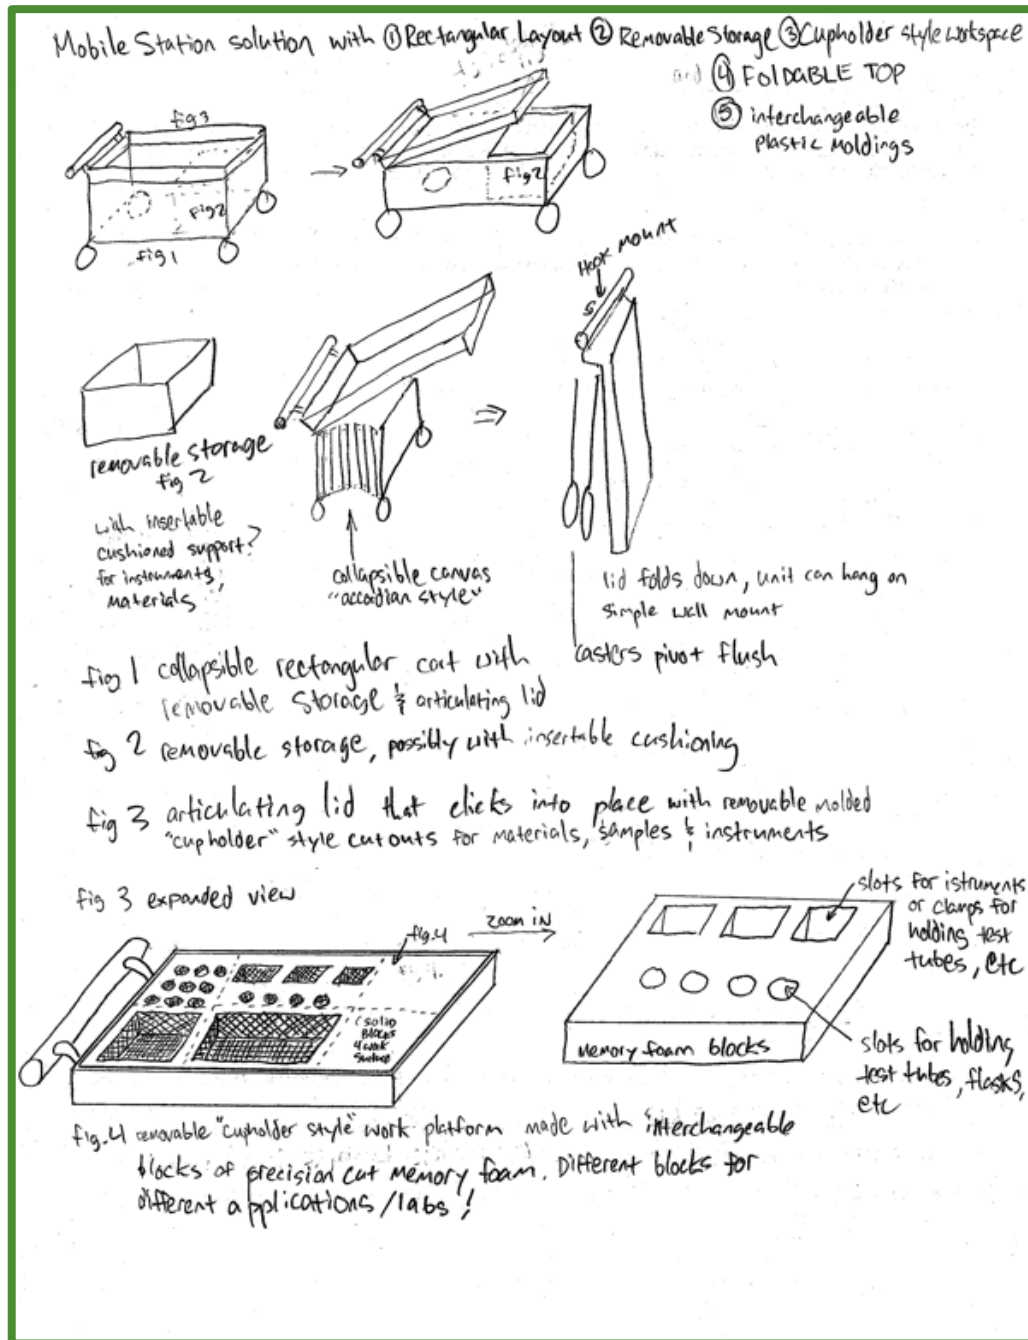 Mobile Station solution with ① Rectangular Layout ② Removable Storage ③ Cupholder style workspace
and ④ FOLDABLE TOP
⑤ interchangeable
Plastic Moldings
fig 3
fig 2
fig 1
fig 2
Hook Mount
removable storage
fig 2
with insertable
cushioned support?
for instruments,
materials
collapsible canvas
"accordian style"
lid folds down, unit can hang on
simple wall mount
casters pivot flush
fig 1 collapsible rectangular cart with
removable storage & articulating lid
fig 2 removable storage, possibly with insertable cushioning
fig 3 articulating lid that clicks into place with removable molded
"cupholder" style cutouts for materials, samples & instruments
fig 3 expanded view
fig.4
zoom IN
slots for istruments
or clamps for
holding test
tubes, etc
(solid
Blocks
4 work
Surface
Memory foam blocks
slots for holding
test tubes, flasks,
etc
fig.4 removable "cupholder style" work platform made with interchangeable
blocks of precision cut memory foam. Different blocks for
different applications/labs!